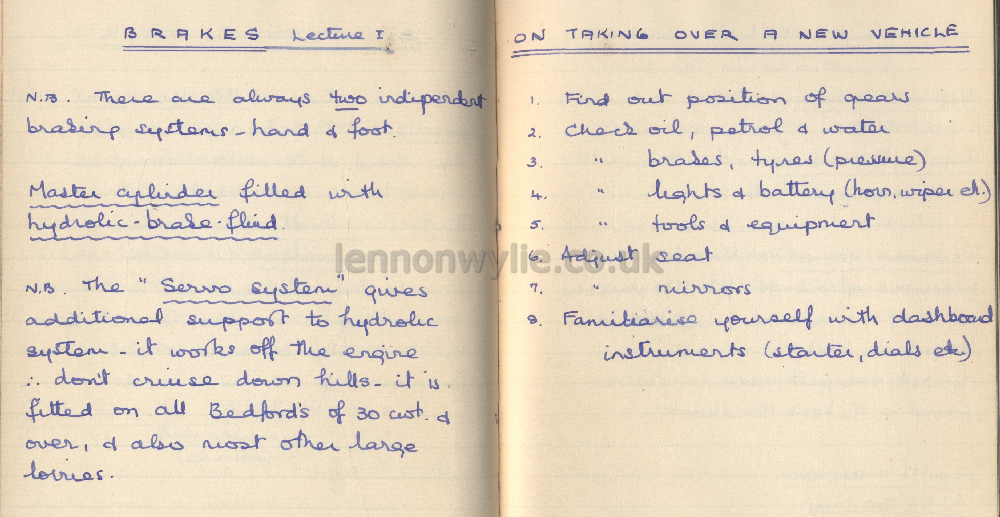 BRAKES Lecture I
N.B. There are always two indipendent
braking systems - hand & foot.
Master cylinder filled with
hydrolic-brake-fluid.
N.B. The "Servo system" gives
additional support to hydrolic
system - it works off the engine
∴ don't criuse down hills - it is
fitted on all Bedford's of 30 cwt. &
over, & also most other large
lorries.
ON TAKING OVER A NEW VEHICLE
1. Find out position of gears
2. Check oil, petrol & water
3. " brakes, tyres (pressure)
4. " lights & battery (horn, wiper etc.)
5. " tools & equipment
6. Adjust seat
7. " mirrors
8. Familiarise yourself with dashboard
instruments (starter, dials etc)
lennonwylie.co.uk